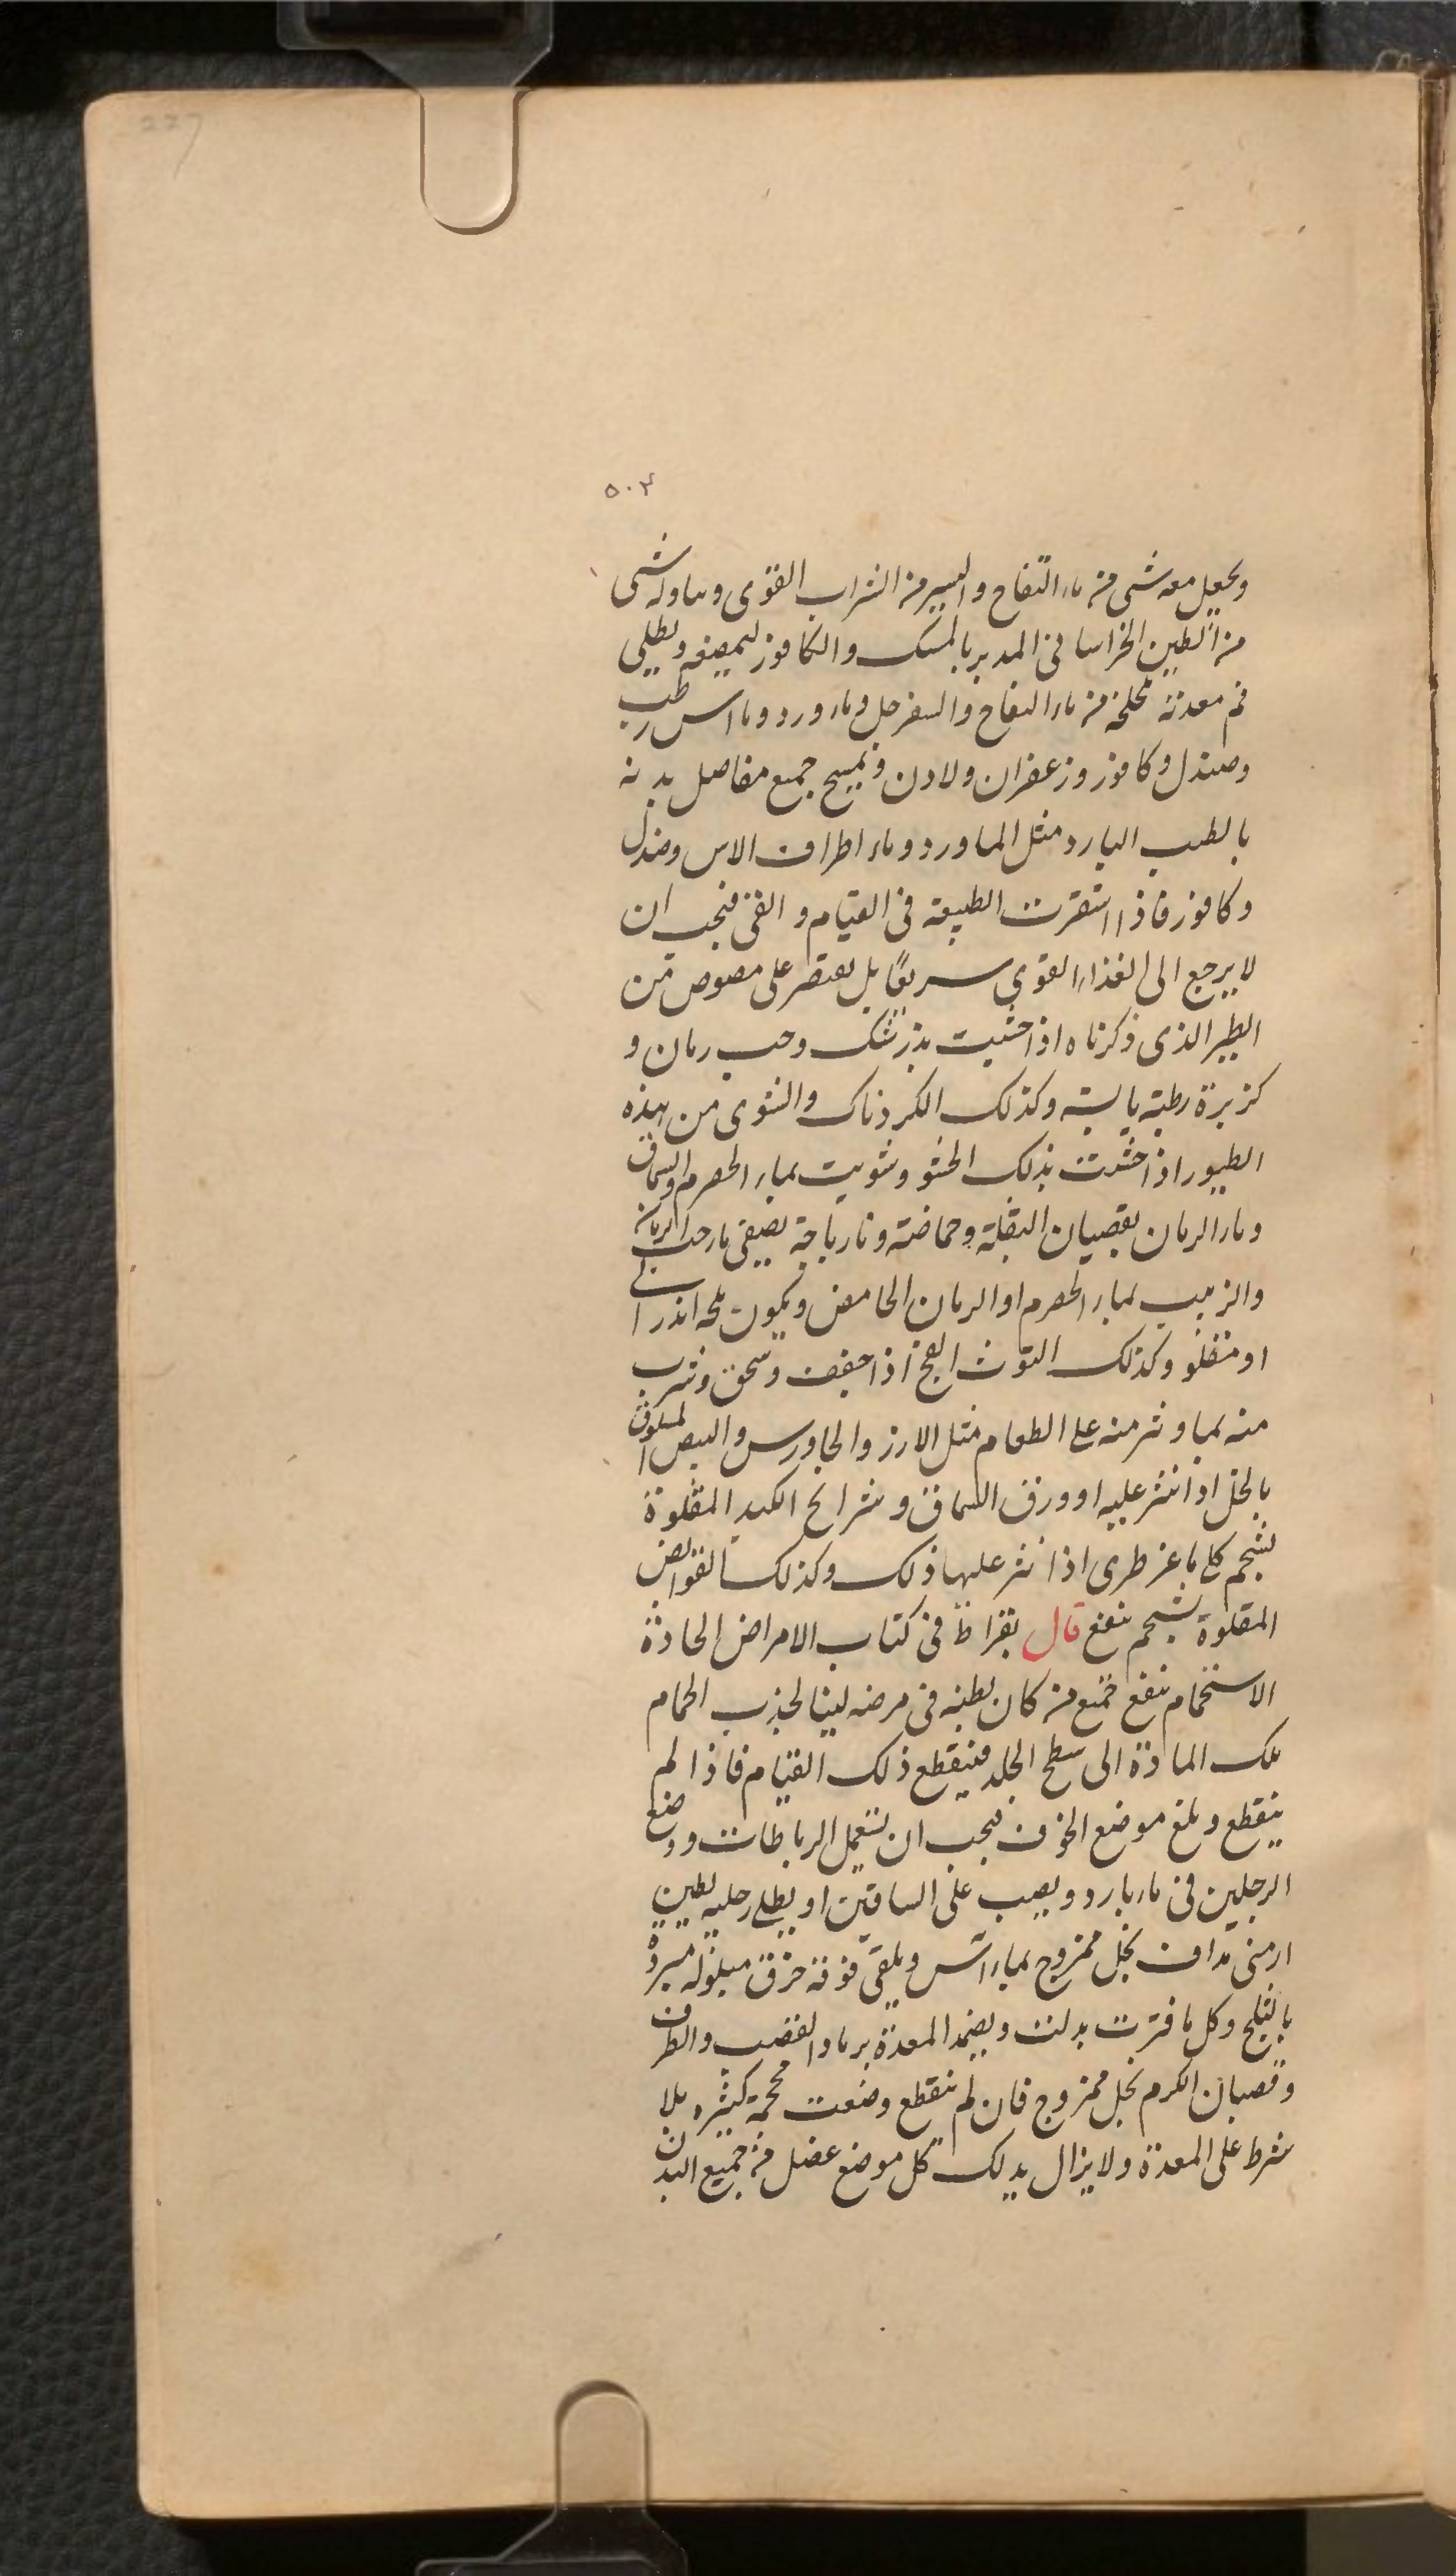 227
٥٠٣
ويجعل معه شى من ماء التفاح واليسير من الشراب القوى ويناوله شى
من الطين الخراسانى المدبر بالمسك والكافور ليمضغه ويطلى
فم معدته بلخلخة من ماء التفاح والسفرجل وماء ورد وماء اس رطب
وصندل وكافور وزعفران ولادن ويمسح جميع مفاصل بدنه
بالطيب البارد مثل الماورد وماء اطراف الاس وصندل
وكافور فاذا استقرت الطبيعة فى القيام و القى فيجب ان
لا يرجع الى الغذاء القوى سريعًا بل يقتصر على مصوص من
الطير الذى ذكرناه اذا حشيت بزرشك وحب رمان و
كزبرة رطبة يابسة وكذلك الكردناك والشوى من هذه
الطيور اذا حشيت بذلك الحشو وشويت بماء الحصرم والسماق
وماء الرمان بقضبان البقلة وحماضته ونارباجة يصفى ماء حب الرمان
والزبيب بماء الحصرم او الرمان الحامض ويكون ملحه اندرانى
او منقلو وكذلك التوث الفج اذا جفف وسحق وشرب
منه بماء ونثر منه على الطعام مثل الارز والجاورس والبيض المسلوق
بالخل اذا نثر عليه او ورق السماق وشرائح الكبد المقلوة
بشحم كلى ماعز طرى اذا نثر عليها ذلك وكذلك القوانص
المقلوة بشحم ينفع قال بقراط فى كتاب الامراض الحادة
الاستحمام ينفع جميع من كان بطنه فى مرضه لينا لجذب الحمام
تلك المادة الى سطح الجلد فينقطع ذلك القيام فاذا لم
ينقطع وبلغ موضع الخوف فيجب ان يستعمل الرباطات ووضع
الرجلين فى ماء بارد ويصب على الساقين او يطلى رجليه بطين
ارمنى مداف بخل ممزوج بماء اس ويلقى فوقه خرق مبلولة مبردة
بالثلج وكل ما فترت بدلت ويضمد المعدة برماد القضب والطرف
وقضبان الكرم بخل ممزوج فان لم ينقطع وضعت محجمة كبيره بلا
شرط على المعدة ولا يزال يدلك كل موضع عضل من جميع البدن